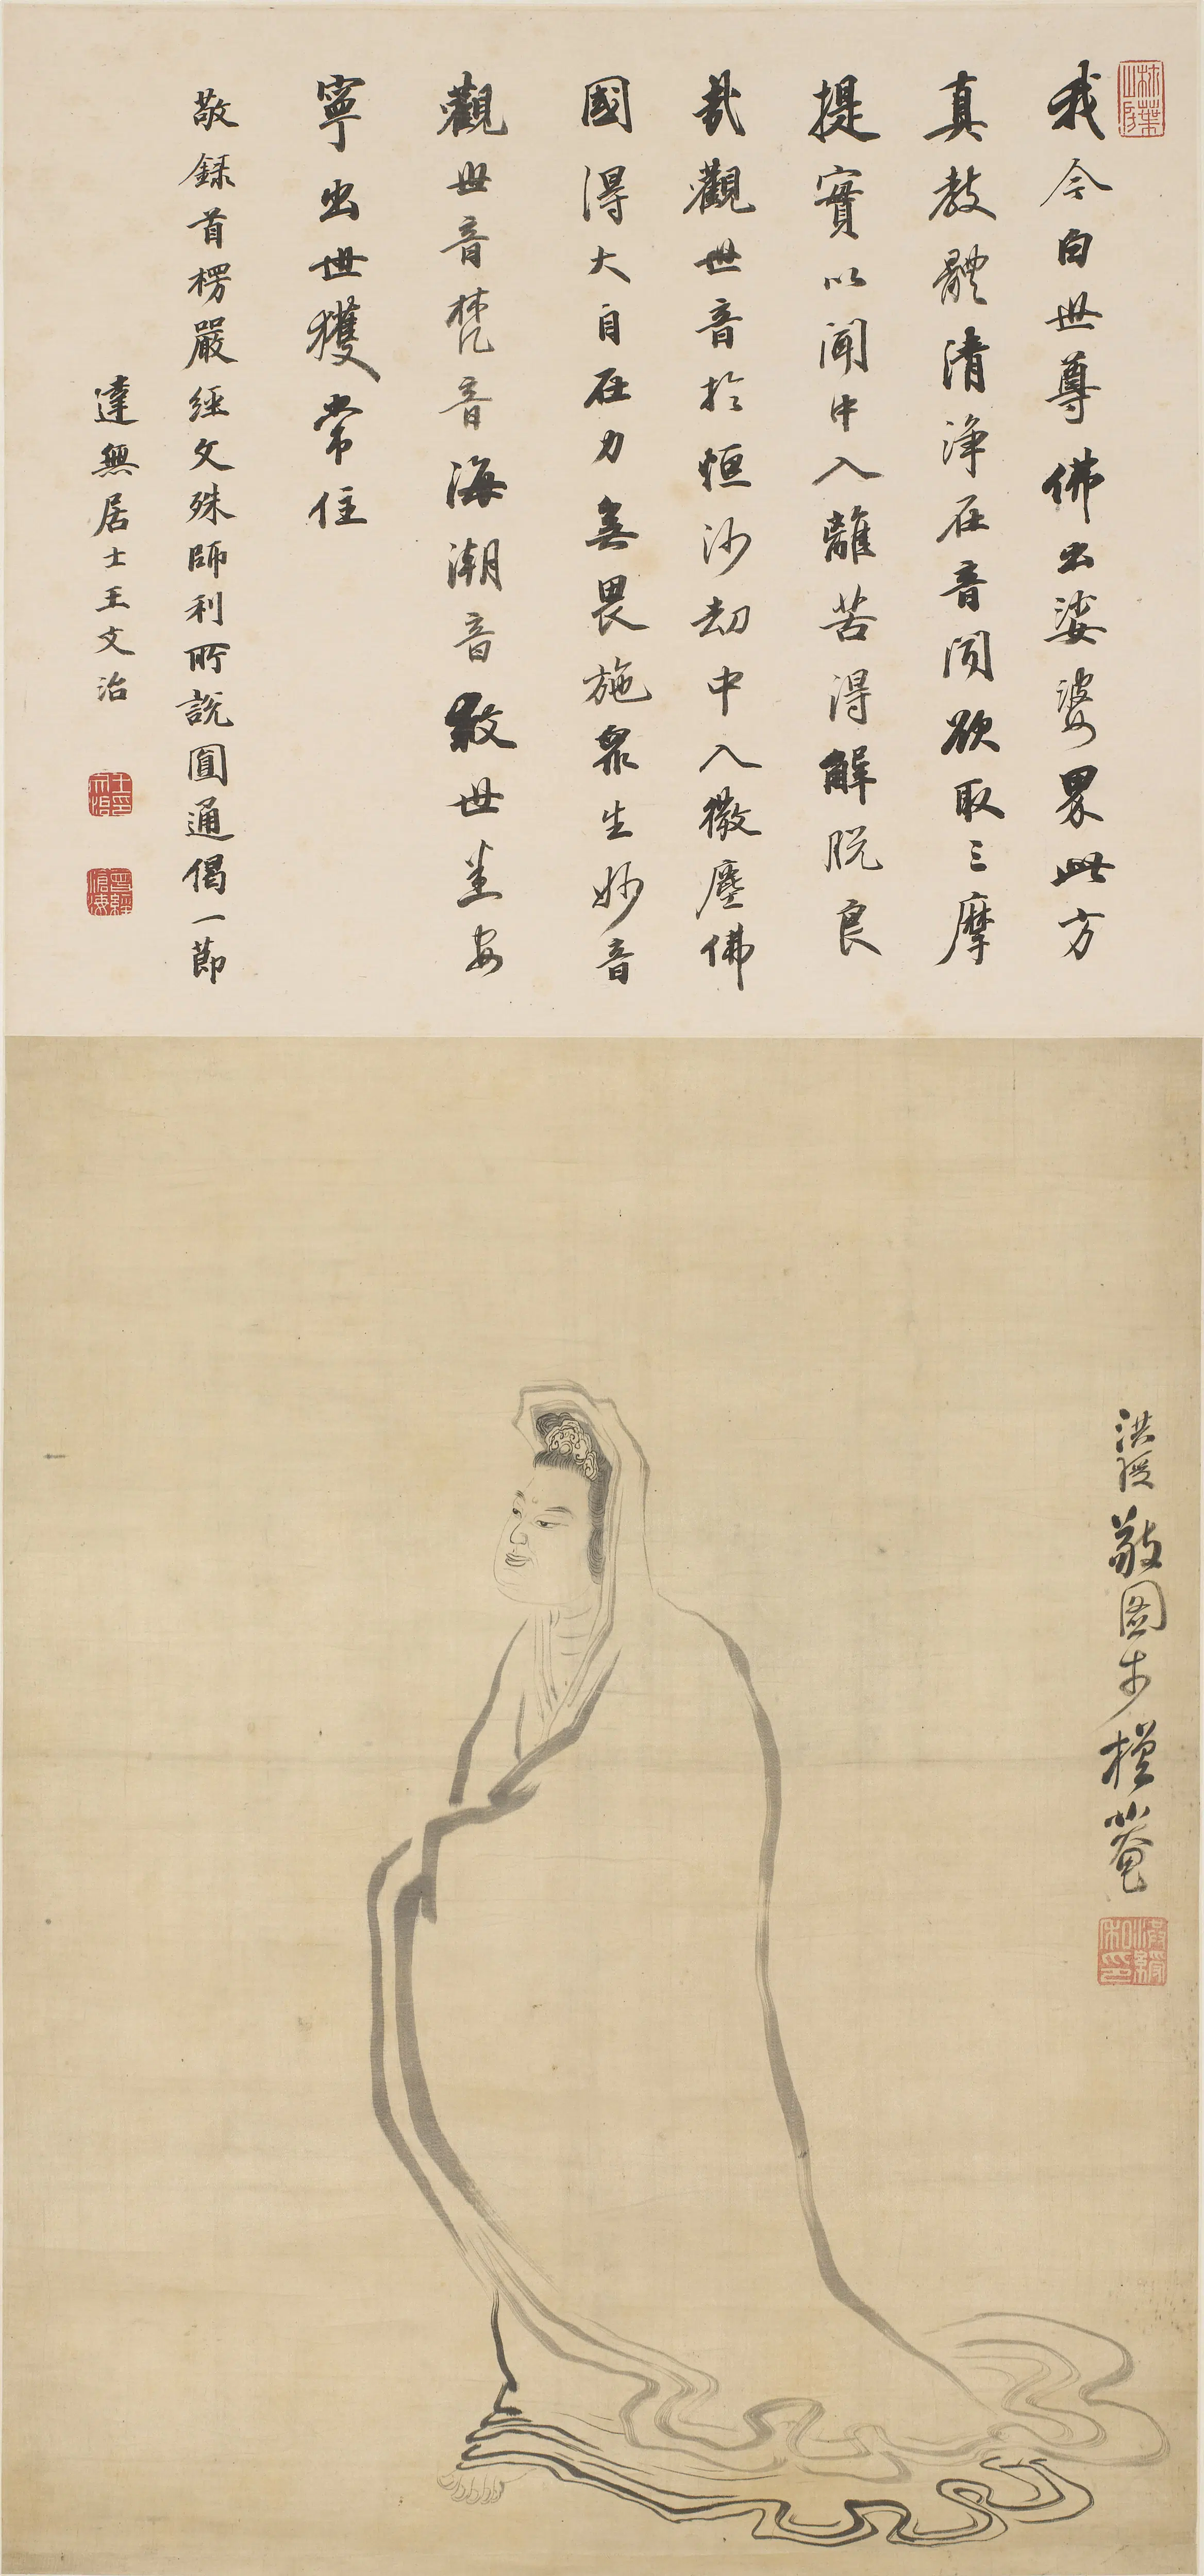 我今白世尊佛出娑婆界此方
真教體清淨在音聞欲取三摩
提實以聞中入離苦得解脫良
哉觀世音於恒沙劫中入微塵佛
國得大自在力無畏施眾生妙音
觀世音梵音海潮音救世悉安
寧出世獲常住
敬錄首楞嚴經文殊師利所說圓通偈一節
達無居士王文治
王文治印
曾經滄海
洪綬敬圖于檀菴